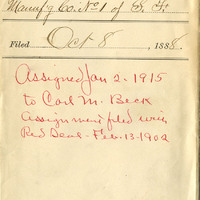 Manufg Co. No 1 of S. F.
Filed Oct 8, 1888.
Assigned Jan 2 - 1915
to Carl M. Beck
assignment filed with
Red Seal - Feb. 13 - 1902